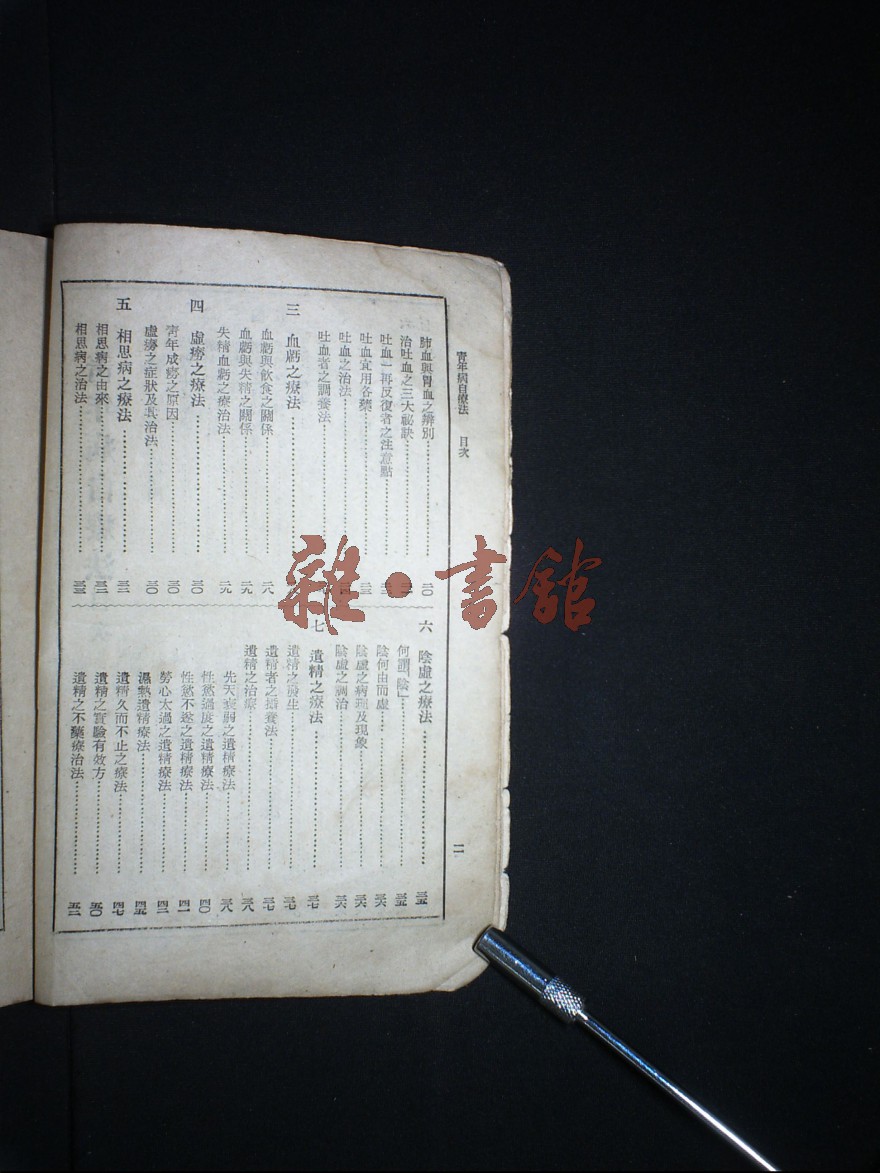 青年病自療法 目次
二
肺血與胃血之辨別…………二〇
治吐血之三大祕訣…………
吐血一再反復者之注意點…………
吐血宜用各藥…………
吐血之治法…………
吐血者之調養法…………
三 血虧之療法…………
血虧與飲食之關係…………二八
血虧與失精之關係…………二九
失精血虧之療治法…………二九
四 虛癆之療法…………三〇
青年成癆之原因…………三〇
虛癆之症狀及其治法…………三〇
五 相思病之療法…………三二
相思病之由來…………三二
相思病之治法…………三三
六 陰虛之療法…………三五
何謂「陰」…………三五
陰何由而虛…………三六
陰虛之病理及現象…………三六
陰虛之調治…………三六
七 遺精之療法…………三七
遺精之發生…………三七
遺精者之攝養法…………三七
遺精之治療…………三八
先天衰弱之遺精療法…………三八
性慾過度之遺精療法…………四〇
性慾不遂之遺精療法…………四一
勞心太過之遺精療法…………四二
濕熱遺精療法…………四五
遺精久而不止之療法…………四七
遺精之實驗有效方…………五〇
遺精之不藥療治法…………五二
雜·書館